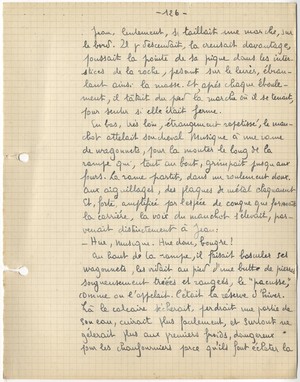 - 126 -
Jean, lentement, se taillait une marche, sur
le bord. Il y descendait, la creusait davantage,
poussait la pointe de sa pique dans les inters-
tices de la roche, pesant sur le levier, ébran-
lant ainsi la masse. Et après chaque éboule-
ment, il tâtait du pied la marche où il se tenait,
pour sentir si elle était ferme.
En bas, très loin, étrangement rapetissé, le man-
chot attelait son cheval Musique à une rame
de wagonnets, pour la monter le long de la
rampe qui, tout au bout, grimpait jusqu'aux
fours. La rame partit, dans un roulement doux,
aux aiguillages, des plaques de métal claquaient
Et, forte, amplifiée par l'espèce de conque que formait
la carrière, la voix du manchot s'élevait, par-
venait distinctement à Jean:
- Hue, Musique. Hue donc, bougre!
Au haut de la rampe, il faisait basculer ses
wagonnets, les vidait au pied d'une butte de pierres
soigneusement triées et rangées, la
comme on l'appelait. C'était la réserve d'hiver.
Là le calcaire sécherait, perdrait une partie de
son eau, cuirait plus facilement, et surtout ne
gèlerait plus aux premiers froids, dangereux
pour les chaufourniers parce qu'ils font éclater la